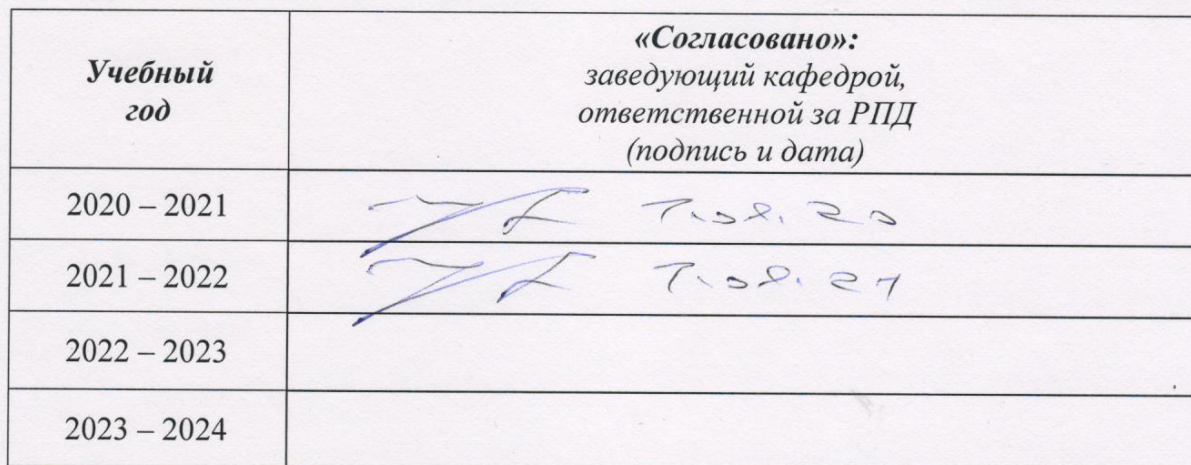 Учебный
год
«Согласовано»:
заведующий кафедрой,
ответственной за РПД
(подпись и дата)
2020 – 2021
2021 – 2022
2022 – 2023
2023 – 2024